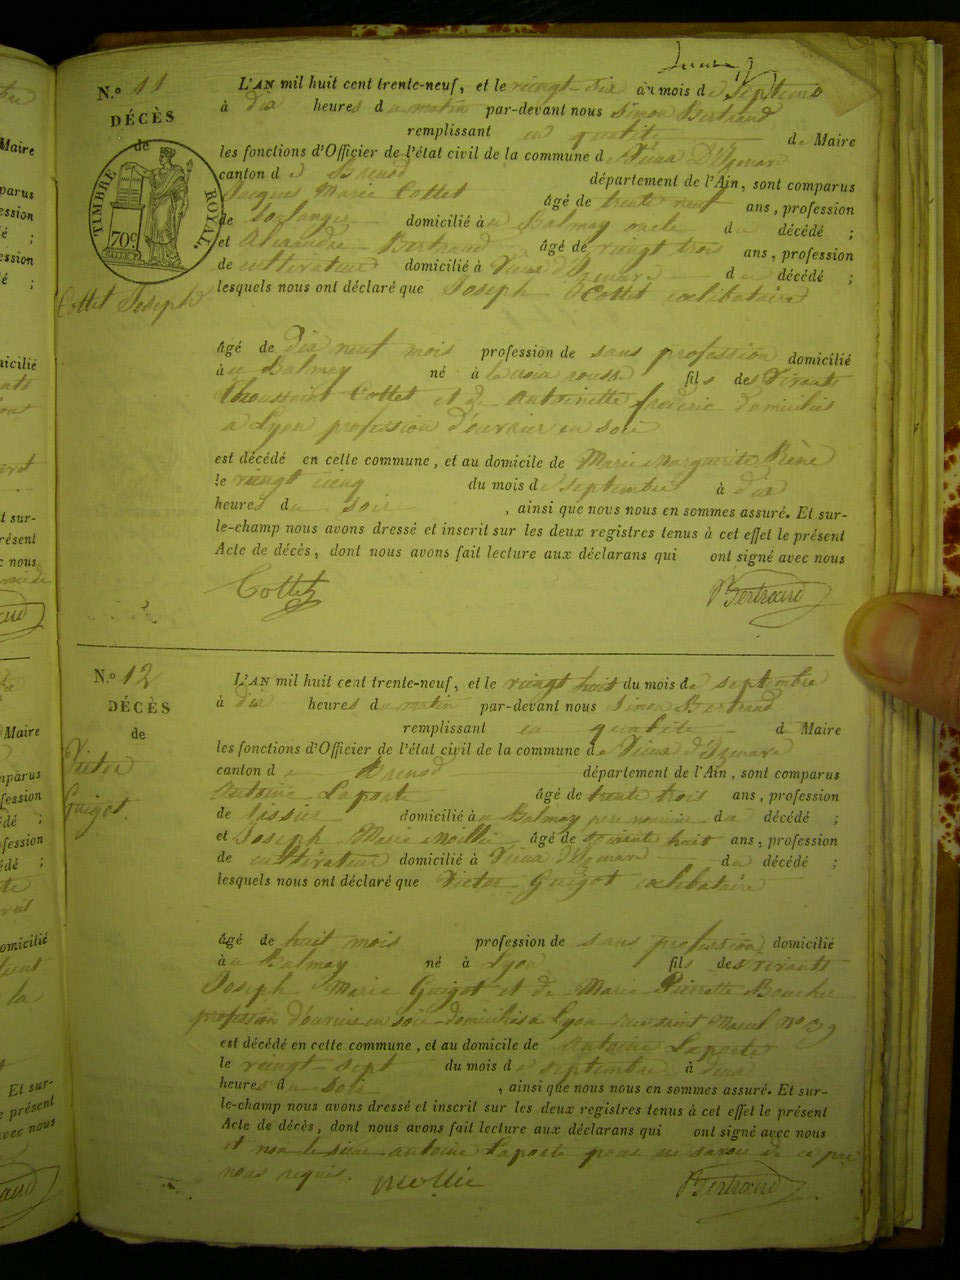 N.º 11
DÉCÈS
de
TIMBRE ROYAL.
70c
Cottet Joseph
L'AN mil huit cent trente-neuf, et le vingt-six du mois de septembre
à dix heures du matin par-devant nous Simon Bertrand
remplissant en qualité de Maire
les fonctions d'Officier de l'état civil de la commune de Vieux D'Izenave
canton de Brenod département de l'Ain, sont comparus
Jacques Marie Cottet âgé de trente neuf ans, profession
de boulanger domicilié à Balmay oncle du décédé ;
et Alexandre Bertrand âgé de vingt trois ans, profession
de cultivateur domicilié à Vieux d'Izenave du décédé ;
lesquels nous ont déclaré que Joseph Cottet celibataire
âgé de dix neuf mois profession de sans profession domicilié
à Balmay né à la croix rousse fils des vivants
Thoussaint Cottet et de Antoinette frederic domiciliés
a Lyon profession d'ouvrier en soie
est décédé en cette commune, et au domicile de Marie Marguerite Rène
le vingt cinq du mois de septembre à dix
heures du soir , ainsi que nous nous en sommes assuré. Et sur-
le-champ nous avons dressé et inscrit sur les deux registres tenus à cet effet le présent
Acte de décès, dont nous avons fait lecture aux déclarans qui ont signé avec nous
Cottet Bertrand
N.º 12
DÉCÈS
de
Victor
Guigot
L'AN mil huit cent trente-neuf, et le vingt huit du mois de septembre
à dix heures du matin par-devant nous Simon Bertrand
remplissant en qualité de Maire
les fonctions d'Officier de l'état civil de la commune de Vieux d'Izenave
canton de Brenod département de l'Ain, sont comparus
Antoine Laporte âgé de trente trois ans, profession
de tissier domicilié à Balmay père nouricier du décédé ;
et Joseph Marie Mollie âgé de soixante huit ans, profession
de cultivateur domicilié à Vieux d'Izenave du décédé ;
lesquels nous ont déclaré que Victor Guigot celibataire
âgé de huit mois profession de sans profession domicilié
à Balmay né à Lyon fils des vivants
Joseph Marie Guigot et de Marie Pierrette Bouchet
profession d'ouvrier en soie domiciliés a Lyon rue saint Marcel Nº 39
est décédé en cette commune, et au domicile de Antoine Laporte
le vingt-sept du mois de septembre à deux
heures du soir , ainsi que nous nous en sommes assuré. Et sur-
le-champ nous avons dressé et inscrit sur les deux registres tenus à cet effet le présent
Acte de décès, dont nous avons fait lecture aux déclarans qui ont signé avec nous
et non le sieur antoine Laporte pour ne savoir de ce par
nous requis. Mollie Bertrand